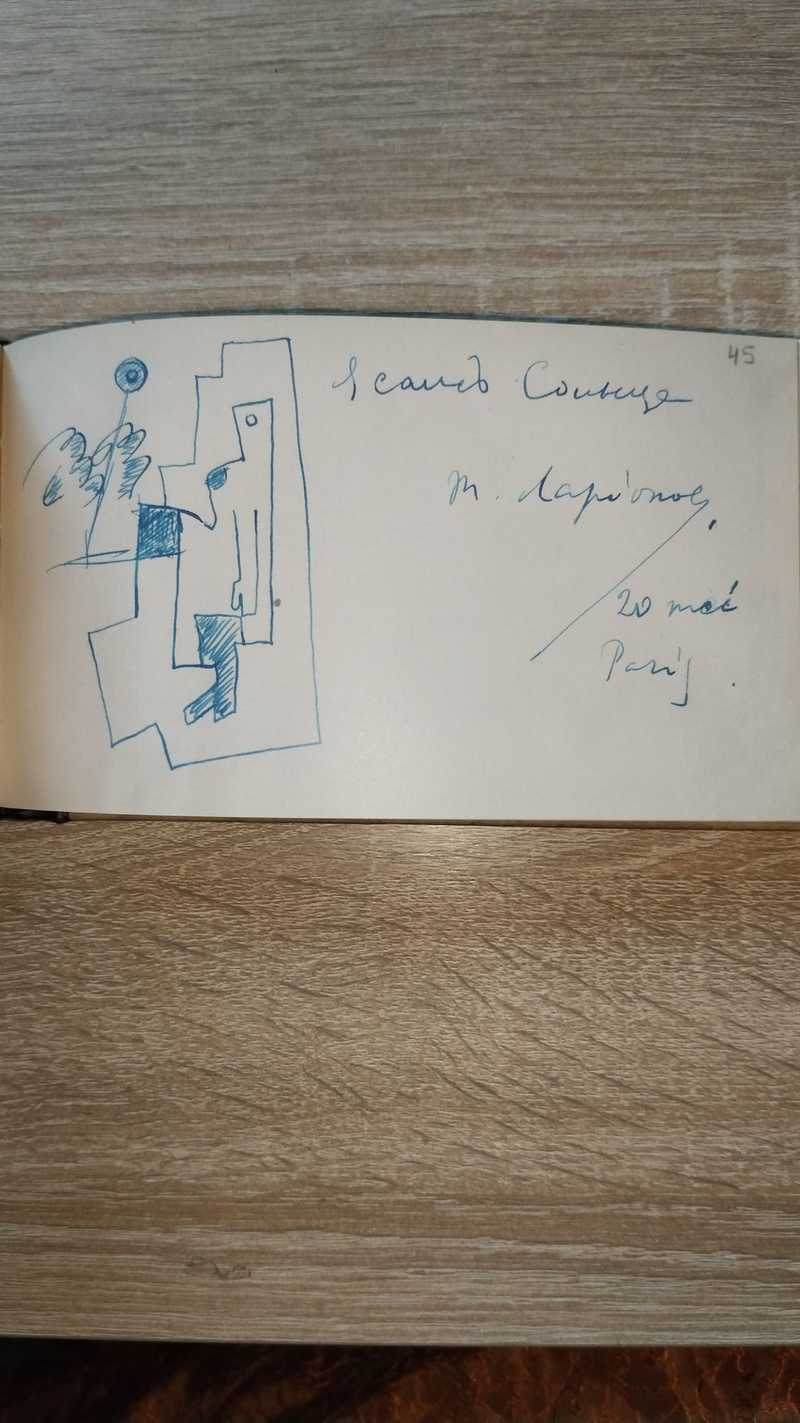 45
Солнце
М. Ларіонов
20 mai
Paris.